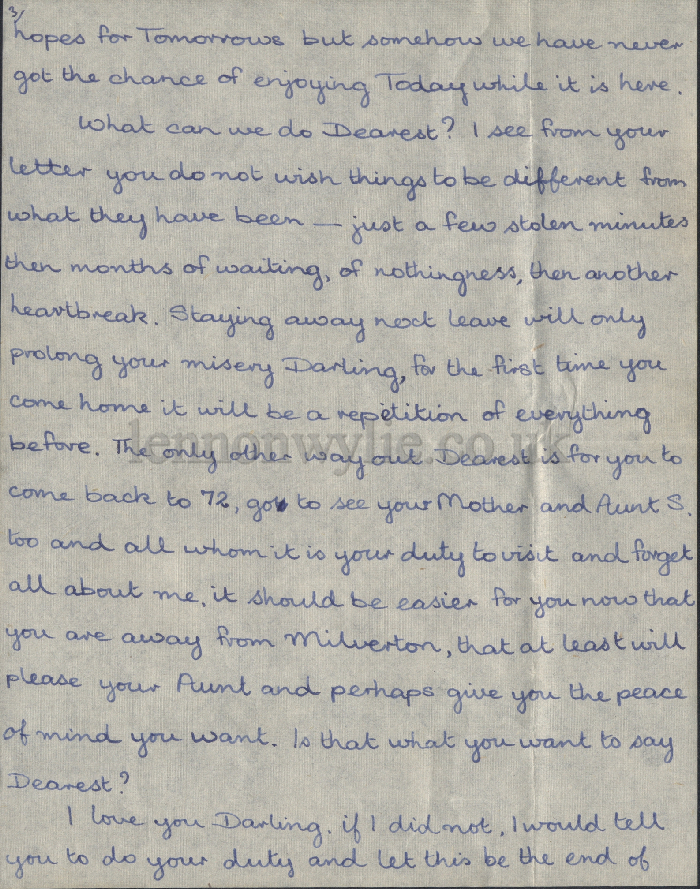 3/
hopes for Tomorrows but somehow we have never
got the chance of enjoying Today while it is here.
What can we do Dearest? I see from your
letter you do not wish things to be different from
what they have been — just a few stolen minutes
then months of waiting, of nothingness, then another
heartbreak. Staying away next leave will only
prolong your misery Darling, for the first time you
come home it will be a repetition of everything
lennonwylie.co.uk
before. The only other way out Dearest is for you to
come back to 72, go to see your Mother and Aunt S.
too and all whom it is your duty to visit and forget
all about me, it should be easier for you now that
you are away from Milverton, that at least will
please your Aunt and perhaps give you the peace
of mind you want. Is that what you want to say
Dearest?
I love you Darling. if I did not, I would tell
you to do your duty and let this be the end of